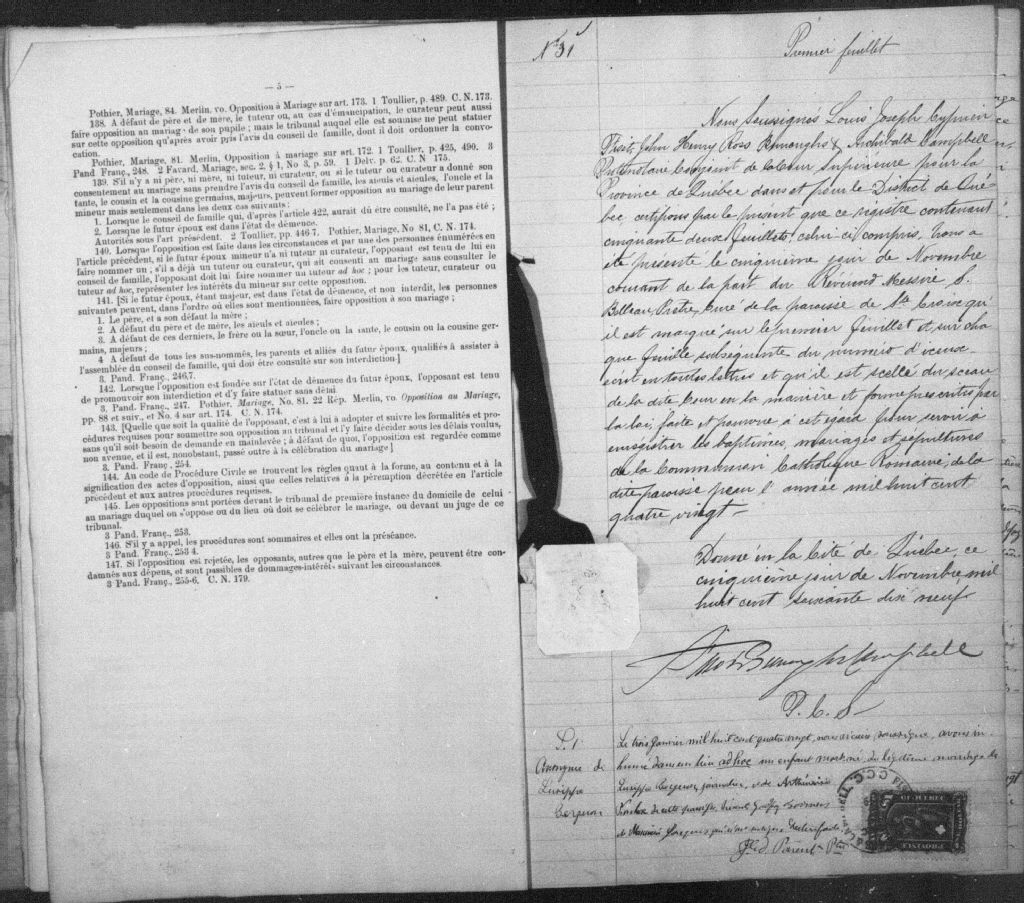 — 5 —
Pothier, Mariage, 84. Merlin, vo. Opposition à Mariage sur art. 173. 1 Toullier, p. 489. C. N. 173.
138. A défaut de père et de mère, le tuteur ou, au cas d'émancipation, le curateur peut aussi
faire opposition au mariag de son pupile; mais le tribunal auquel elle est soumise ne peut statuer
sur cette opposition qu'après avoir pris l'avis du conseil de famille, dont il doit ordonner la convo-
cation.
Pothier, Mariage, 81. Merlin, Opposition à mariage sur art. 172. 1 Toullier, p. 425, 490. 3
Pand Franç., 248. 2 Favard, Mariage, sec. 2, § 1, No 3, p. 59. 1 Delv. p. 62. C. N 175.
139. S'il n'y a ni père, ni mère, ni tuteur, ni curateur, ou si le tuteur ou curateur a donné son
consentement au mariage sans prendre l'avis du conseil de famille, les aïeuls et aïeules, l'oncle et la
tante, le cousin et la cousine germains, majeurs, peuvent former opposition au mariage de leur parent
mineur mais seulement dans les deux cas suivants :
1. Lorsque le conseil de famille qui, d'après l'article 422, aurait dû être consulté, ne l'a pas été ;
2. Lorsque le futur époux est dans l'état de démence.
Autorités sous l'art précédent. 2 Toullier, pp. 446-7. Pothier, Mariage, No 81, C. N. 174.
140. Lorsque l'opposition est faite dans les circonstances et par une des personnes énumérées en
l'article précédent, si le futur époux mineur n'a ni tuteur ni curateur, l'opposant est tenu de lui en
faire nommer un ; s'il a déjà un tuteur ou curateur, qui ait consenti au mariage sans consulter le
conseil de famille, l'opposant doit lui faire nommer un tuteur ad hoc ; pour les tuteur, curateur ou
tuteur ad hoc, représenter les intérêts du mineur sur cette opposition.
141. [Si le futur époux, étant majeur, est dans l'état de démence, et non interdit, les personnes
suivantes peuvent, dans l'ordre où elles sont mentionnées, faire opposition à son mariage ;
1. Le père, et a son défaut la mère ;
2. A défaut du père et de mère, les aïeuls et aïeules ;
3. A défaut de ces derniers, le frère ou la sœur, l'oncle ou la tante, le cousin ou la cousine ger-
mains, majeurs ;
4 A défaut de tous les sus-nommés, les parents et alliés du futur époux, qualifiés à assister à
l'assemblée du conseil de famille, qui doit être consulté sur son interdiction]
3. Pand. Franç., 246,7.
142. Lorsque l'opposition est fondée sur l'état de démence du futur époux, l'opposant est tenu
de promouvoir son interdiction et d'y faire statuer sans délai.
3. Pand. Franç., 247. Pothier, Mariage, No. 81. 22 Rép. Merlin, vo. Opposition au Mariage,
pp. 88 et suiv., et No. 4 sur art. 174. C. N. 174.
143. [Quelle que soit la qualité de l'opposant, c'est à lui à adopter et suivre les formalités et pro-
cédures requises pour soumettre son opposition au tribunal et l'y faire décider sous les délais voulus,
sans qu'il soit besoin de demande en mainlevée ; à défaut de quoi, l'opposition est regardée comme
non avenue, et il est, nonobstant, passé outre à la célébration du mariage]
3. Pand. Franç, 254.
144. Au code de Procédure Civile se trouvent les règles quant à la forme, au contenu et à la
signification des actes d'opposition, ainsi que celles relatives à la péremption décrétée en l'article
précédent et aux autres procédures requises.
145. Les oppositions sont portées devant le tribunal de première instance du domicile de celui
au mariage duquel on s'oppose ou du lieu où doit se célébrer le mariage, ou devant un juge de ce
tribunal.
3 Pand. Franç., 253.
146. S'il y a appel, les procédures sont sommaires et elles ont la préséance.
3 Pand. Franç., 253 4.
147. Si l'opposition est rejetée, les opposants, autres que le père et la mère, peuvent être con-
damnés aux dépens, et sont passibles de dommages-intérêts, suivant les circonstances.
3 Pand. Franç., 255-6. C. N. 179.
No 31
Premier feuillet
Nous Soussignés Louis Joseph Cyprien
Fiset, John Henry Ross Burroughs & Archibald Campbell
Protonotaire Conjoint de la Cour Supérieure pour la
Province de Québec dans et pour le District de Qué-
bec certifions par le présent que ce registre contenant
cinquante deux feuillets, celui-ci compris, nous a
été présenté le cinquième jour de Novembre
courant de la part du Révérend Messire S.
Belleau Prêtre, Curé de la paroisse de Ste Croix qu'
il est marqué sur le premier feuillet et sur cha
que feuillet subséquente du numéro d'iceux
écrit en toutes lettres et qu'il est scellé du sceau
de la dite Cour en la manière et forme prescrites par
la loi, faite et pourvue à cet égard, pour servir à
enregistrer les baptêmes, mariages et sépultures
de la Communion Catholique Romaine, de la
dite paroisse pour l'année mil huit cent
quatre vingt -
Donné en la Cité de Québec, ce
cinquième jour de Novembre, mil
huit cent soixante dix neuf
Fiset Burroughs Campbell
P. C. S
P. 1
Anonyme de
Bergeron
Le trois Janvier mil huit cent quatre vingt, nous soussigné, avons in-
humé dans un lieu ad hoc un enfant mort né, du légitime mariage de
Bergeron, journalier, et de
de cette paroisse,
Parent Ptre